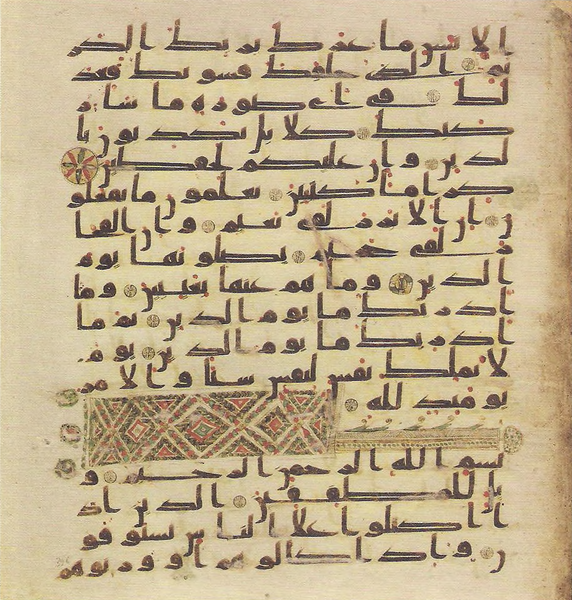 الانسن ما غرك بربك الكر
يم الذي خلقك فسويك فعد
لك في اي صوره ما شا
ركبك كلا بل تكذبون با
لدين وان عليكم لحفظين
كراما كتبين يعلمون ما تفعلو
ن ان الابرار لفي نعيم وان الفجا
ر لفي جحيم يصلونها يوم
الدين وما هم عنها بغايبين وما
ادريك ما يوم الدين ثم ما
ادريك ما يوم الدين يوم
لا تملك نفس لنفس شيا والامر
يومئذ لله
بسم الله الرحمن الرحيم و
يل للمطففين الذين اذ
ا اكتالوا علا الناس يستوفو
ن واذا كالوهم او وزنوهم